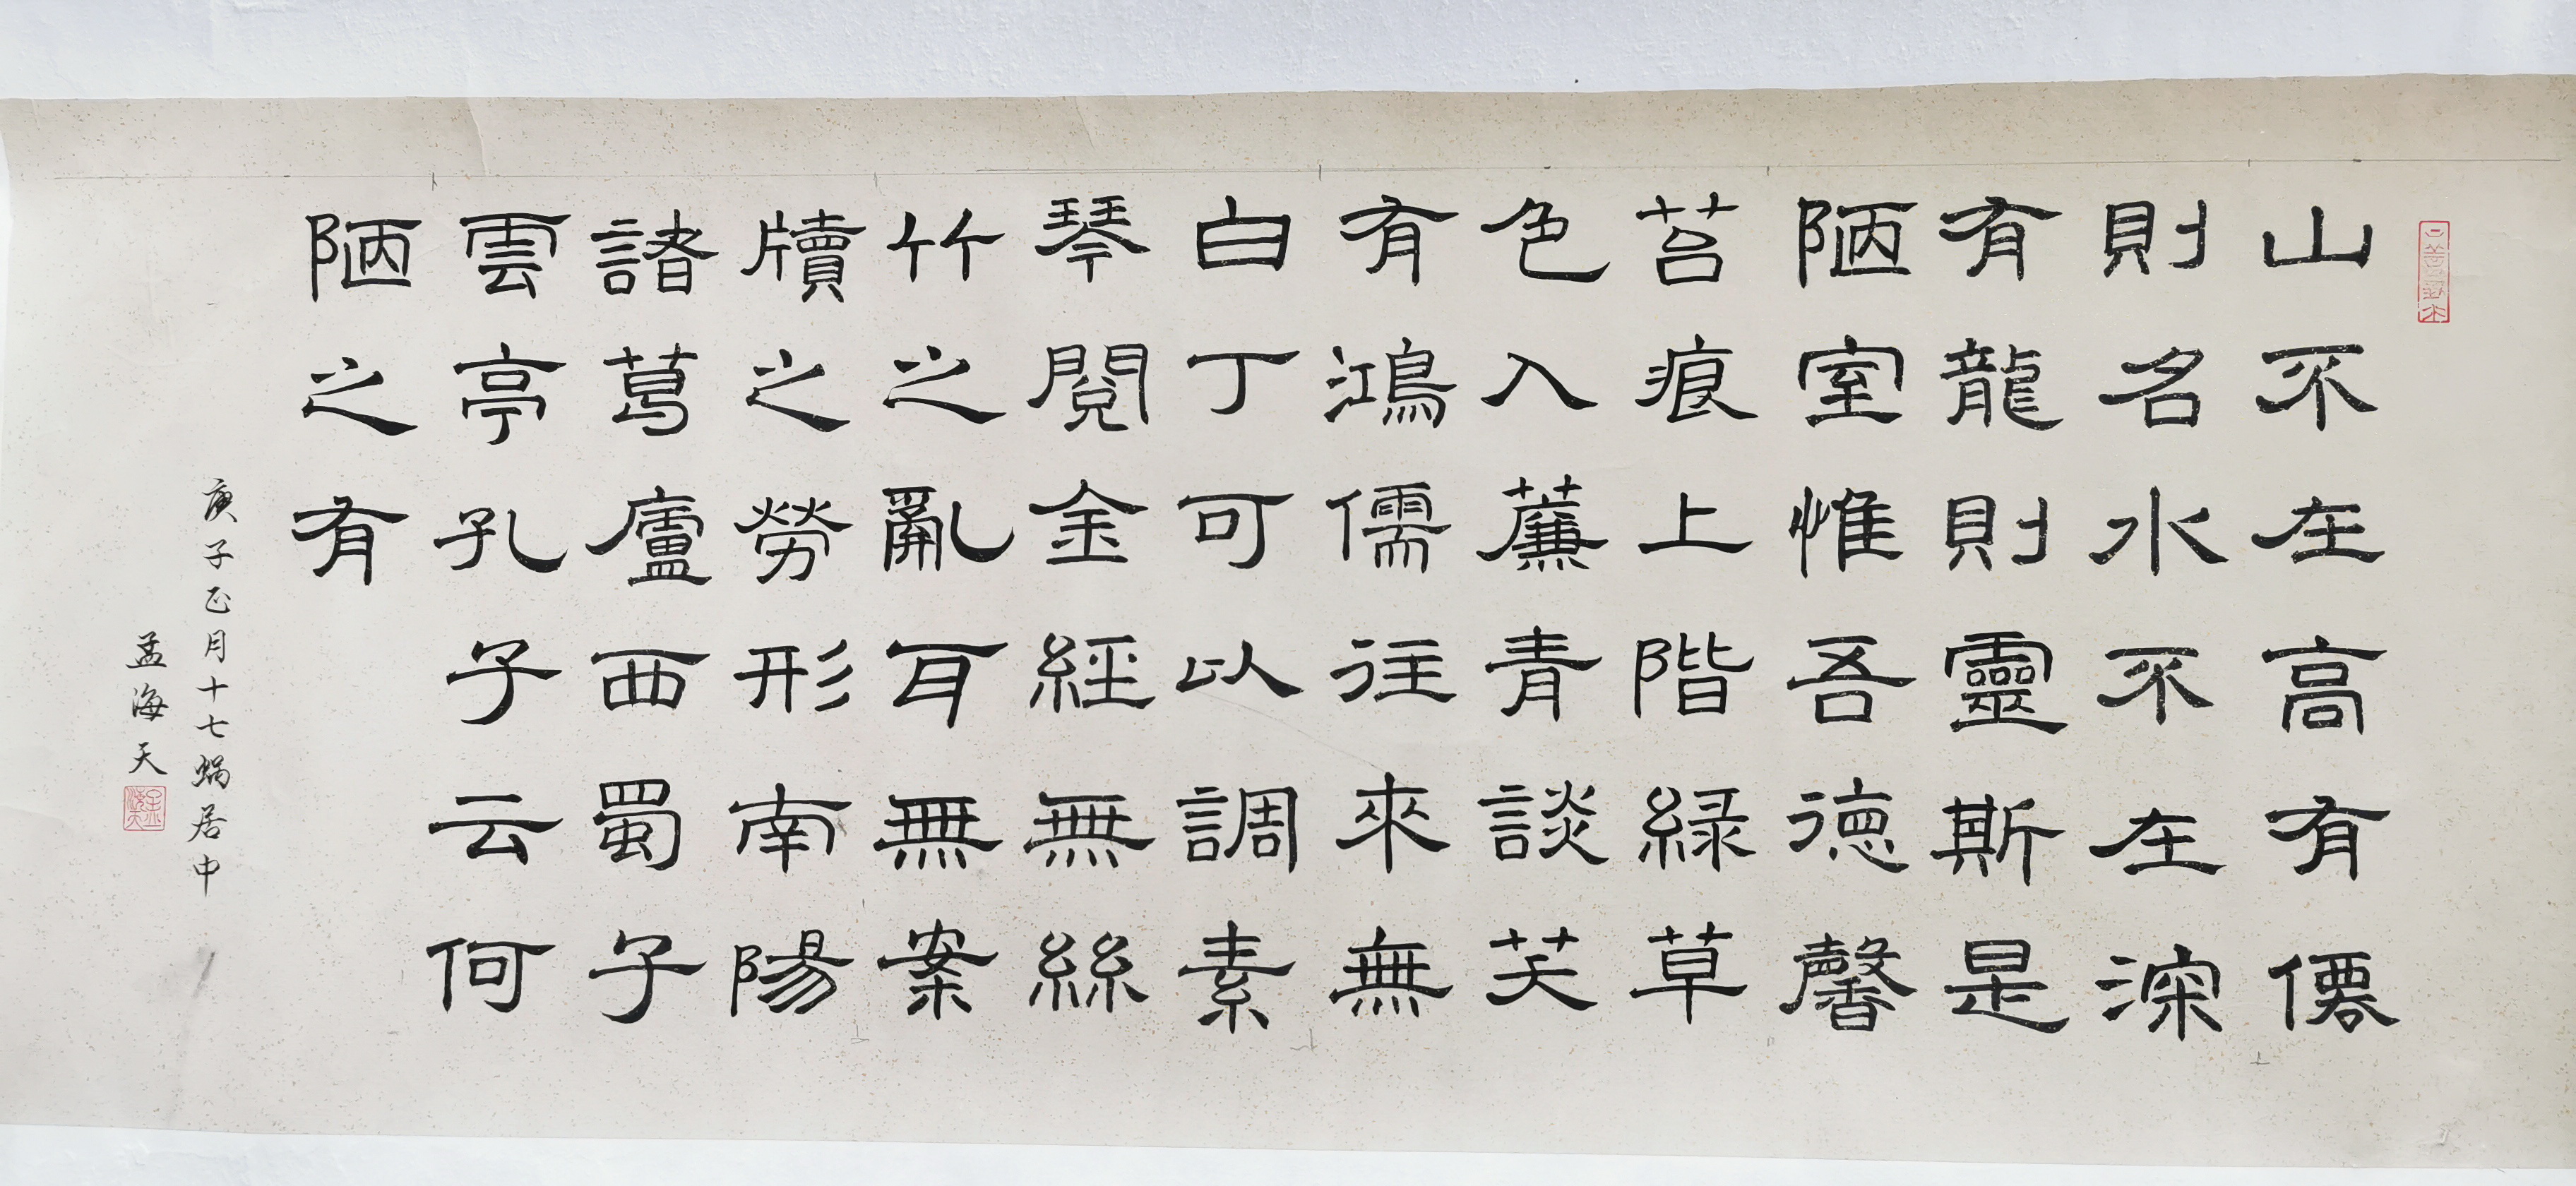 山不在高有僊
則名水不在深
有龍則靈斯是
陋室惟吾德馨
苔痕上階緑草
色入薕青談芖
有鴻儒往來無
白丁可以調素
琴閱金經無絲
竹之亂耳無案
牘之勞形南陽
諸葛廬西蜀子
雲亭孔子云何
陋之有
庚子正月十七蝸居中
孟海天